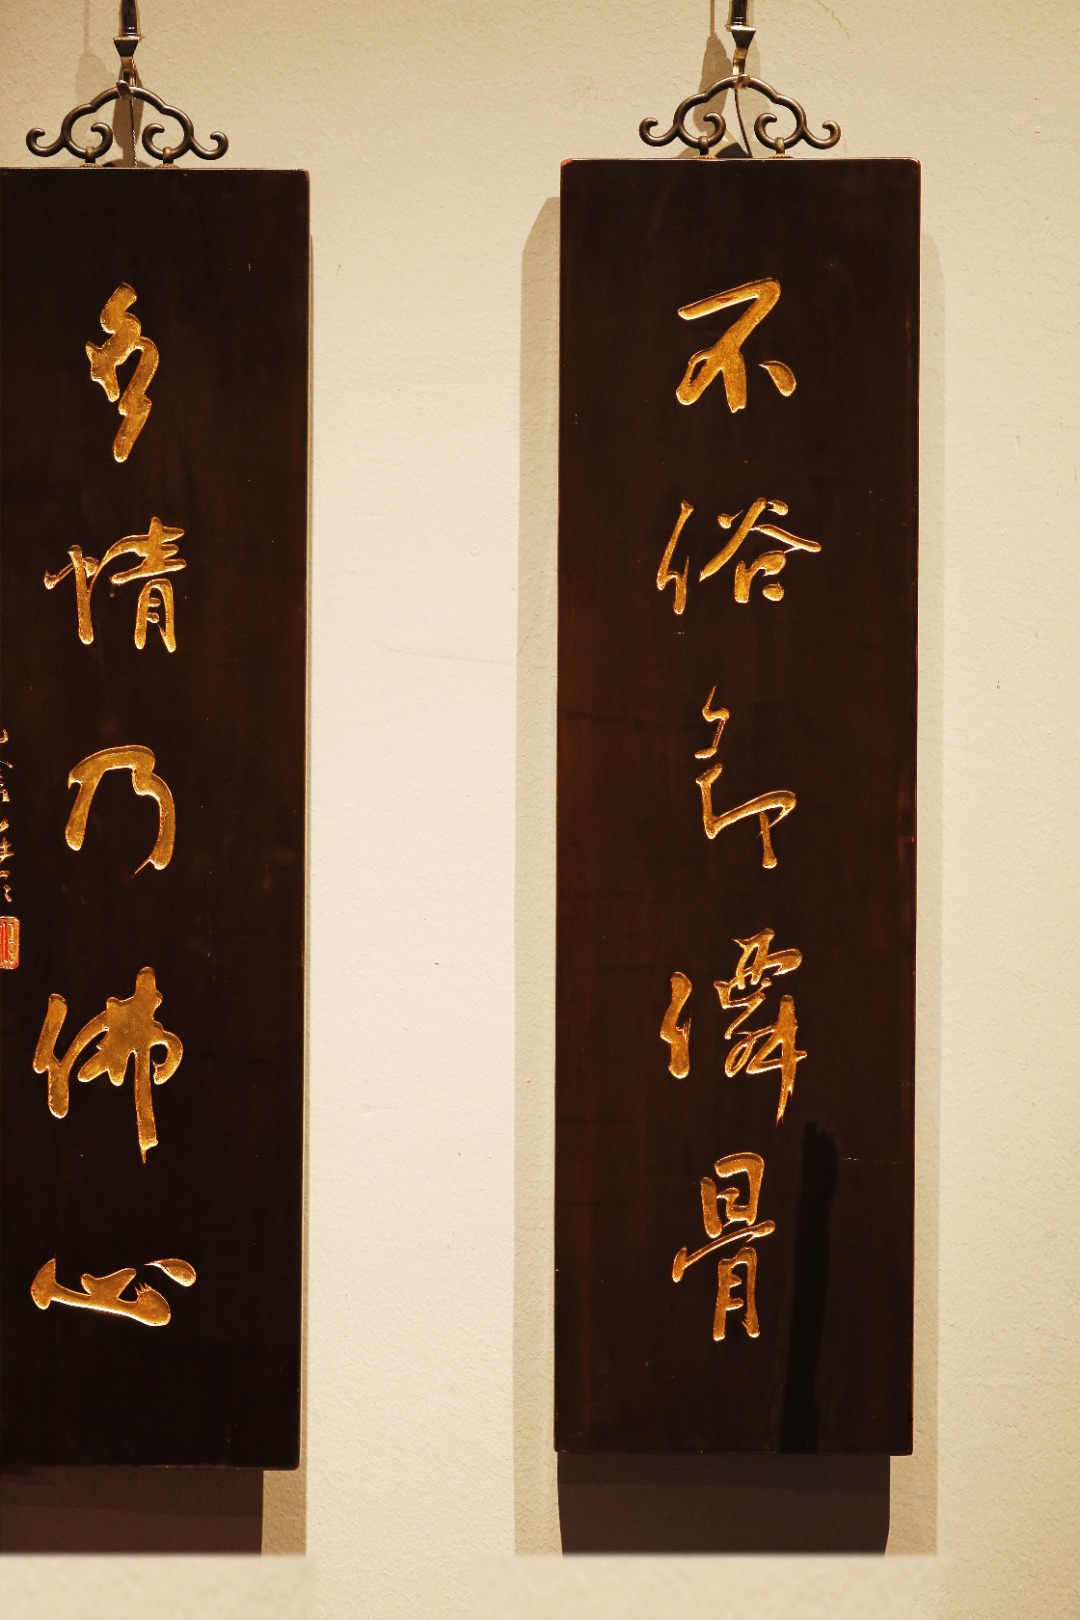 不俗即僊骨
多情乃佛心